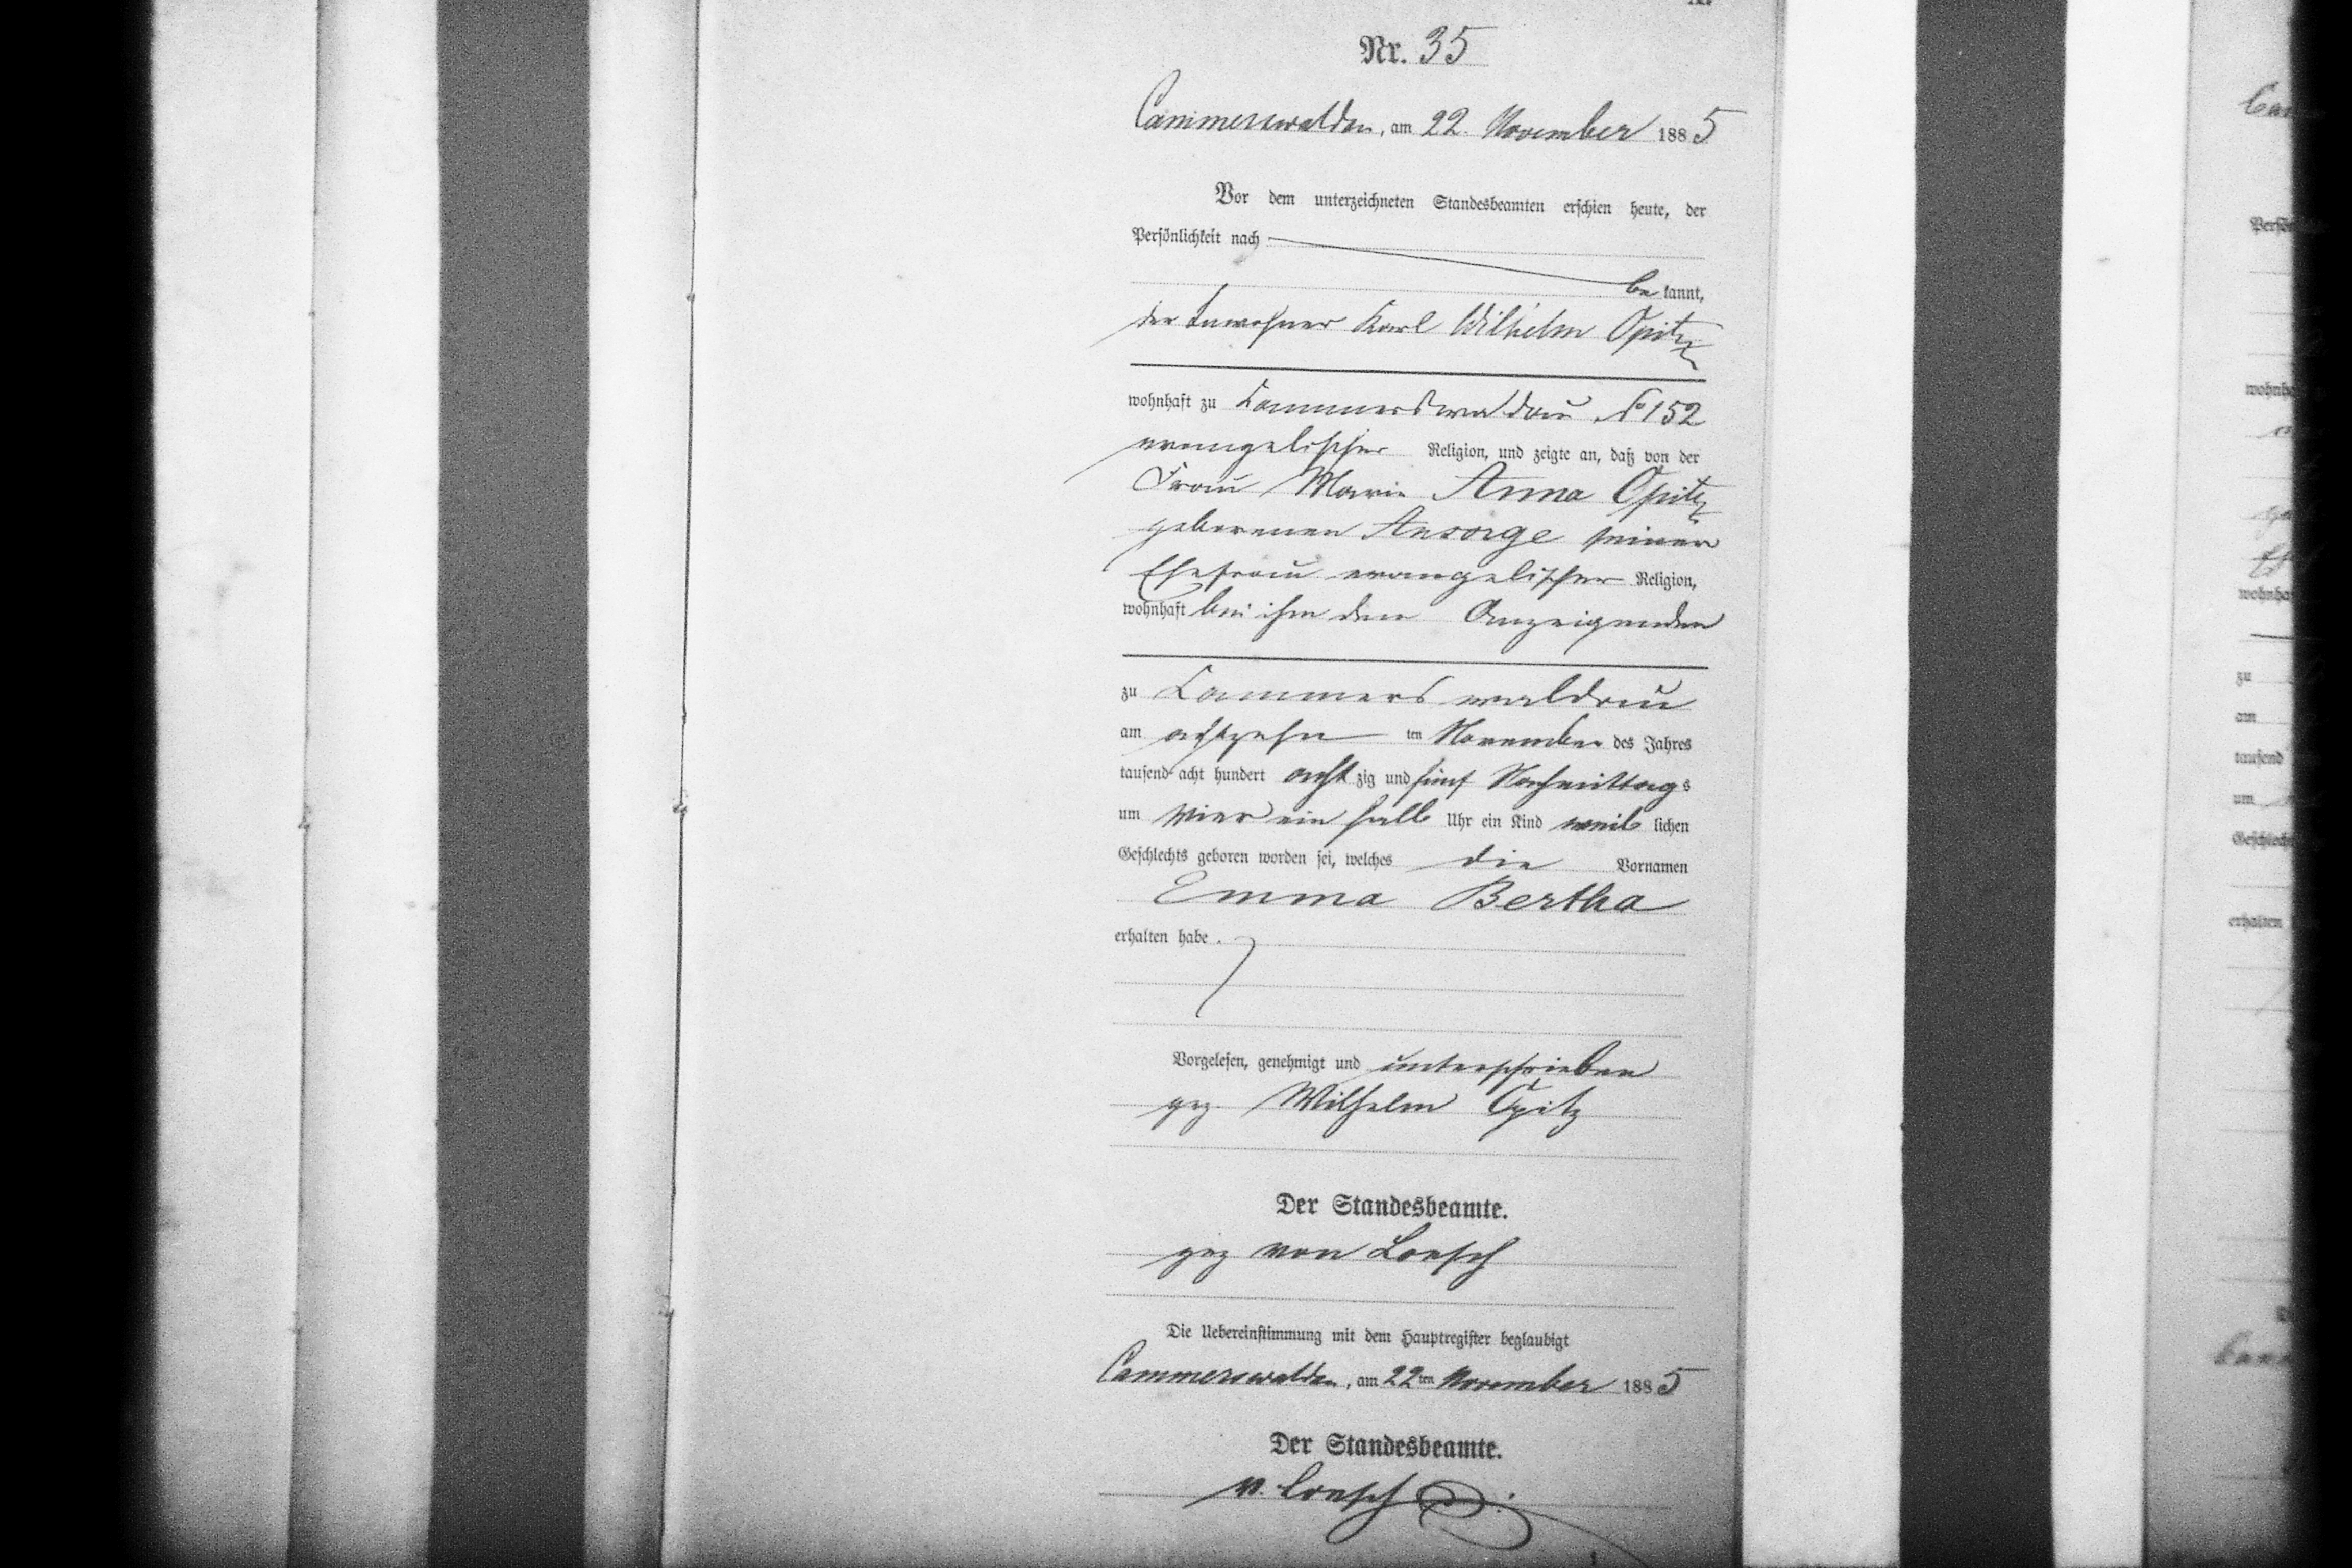 Nr. 35
Cammerswaldau, am 22. November 1885
Vor dem unterzeichneten Standesbeamten erschien heute, der
Persönlichkeit nach
be kannt,
der Inwohner Karl Wilhelm Opitz
wohnhaft zu Cammerswaldau No 152
evangelischer Religion, und zeigte an, daß von der
Frau Marie Anna Opitz
geborenen Ansorge seiner
Ehefrau evangelischer Religion,
wohnhaft bei ihm dem Anzeigenden
zu Cammerswaldau
am achtzehn ten November des Jahres
tausend acht hundert acht zig und fünf Nachmittags
um vier ein halb Uhr ein Kind weib lichen
Geschlechts geboren worden sei, welches die Vornamen
Emma Bertha
erhalten habe.
Vorgelesen, genehmigt und unterschrieben
gez. Wilhelm Opitz
Der Standesbeamte.
gez von Loesch
Die Uebereinstimmung mit dem Hauptregister beglaubigt
Cammerswaldau, am 22ten November 1885
Der Standesbeamte.
v. Loesch
wohnha
zu
am
tausend
um
erhalten